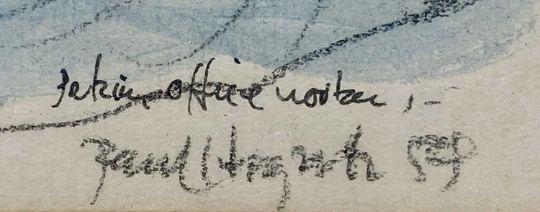 Pekin office worker,-
Paul Hogarth